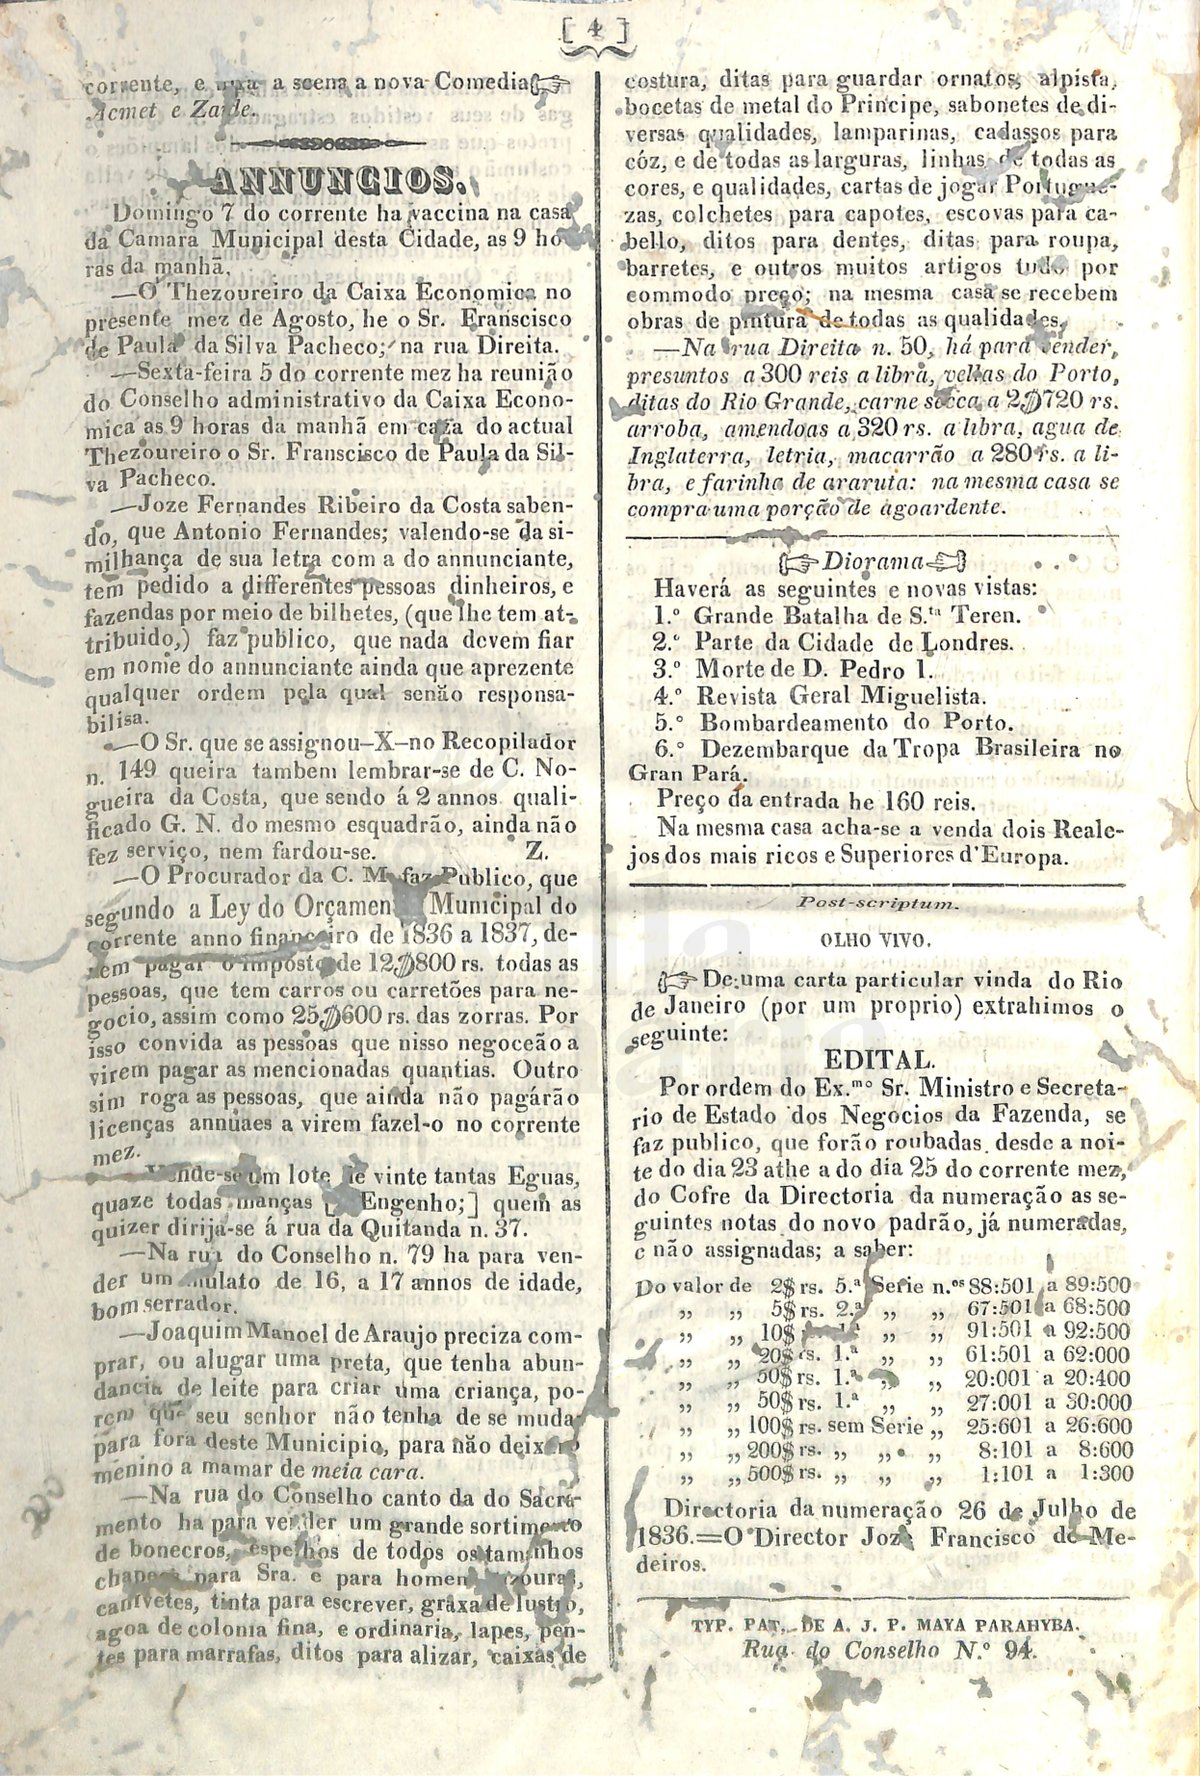 [ 4 ]
corrente, e a scena a nova Comedia
Acmet e Zaide.
ANNUNCIOS.
Domingo 7 do corrente ha vaccina na casa
da Camara Municipal desta Cidade, as 9 ho
ras da manhã.
—O Thezoureiro da Caixa Economica no
presente mez de Agosto, he o Sr. Franscisco
de Paula da Silva Pacheco; na rua Direita.
—Sexta-feira 5 do corrente mez ha reunião
do Conselho administrativo da Caixa Econo-
mica as 9 horas da manhã em caza do actual
Thezoureiro o Sr. Franscisco de Paula da Sil-
va Pacheco.
—Joze Fernandes Ribeiro da Costa saben-
do, que Antonio Fernandes; valendo-se da si-
milhança de sua letra com a do annunciante,
tem pedido a differentes pessoas dinheiros, e
fazendas por meio de bilhetes, (que lhe tem at-
tribuido,) faz publico, que nada devem fiar
em nome do annunciante ainda que aprezente
qualquer ordem pela qual senão responsa-
bilisa.
—O Sr. que se assignou—X—no Recopilador
n. 149 queira tambem lembrar-se de C. No-
gueira da Costa, que sendo á 2 annos quali-
ficado G. N. do mesmo esquadrão, ainda não
fez serviço, nem fardou-se. Z.
—O Procurador da C. M. faz Publico, que
segundo a Ley do Orçamen Municipal do
corrente anno financeiro de 1836 a 1837, de-
vem pagar o imposto de 12$800 rs. todas as
pessoas, que tem carros ou carretões para ne-
gocio, assim como 25$600 rs. das zorras. Por
isso convida as pessoas que nisso negoceão a
virem pagar as mencionadas quantias. Outro
sim roga as pessoas, que ainda não pagárão
licenças annuaes a virem fazel-o no corrente
mez.
Vende-se um lote de vinte tantas Eguas,
quaze todas manças [ Engenho;] quem as
quizer dirija-se á rua da Quitanda n. 37.
—Na rua do Conselho n. 79 ha para ven-
der um mulato de 16, a 17 annos de idade,
bom serrador.
—Joaquim Manoel de Araujo preciza com-
prar, ou alugar uma preta, que tenha abun-
dancia de leite para criar uma criança, po-
rem que seu senhor não tenha de se mudar
para fora deste Municipio, para não deixar o
menino a mamar de meia cara.
—Na rua do Conselho canto da do Sacra-
mento ha para vender um grande sortimento
de bonecros, espelhos de todos os tamanhos
chapeos para Sra. e para homem
canivetes, tinta para escrever, graxa de lustro,
agoa de colonia fina, e ordinaria, lapes, pen-
tes para marrafas, ditos para alizar, caixas de
costura, ditas para guardar ornatos, alpista,
bocetas de metal do Principe, sabonetes de di-
versas qualidades, lamparinas, cadassos para
cóz, e de todas as larguras, linhas de todas as
cores, e qualidades, cartas de jogar Portugue-
zas, colchetes para capotes, escovas para ca-
bello, ditos para dentes, ditas para roupa,
barretes, e outros muitos artigos tudo por
commodo preço; na mesma casa se recebem
obras de pintura de todas as qualidades.
—Na rua Direita n. 50, há para vender,
presuntos a 300 reis a libra, vellas do Porto,
ditas do Rio Grande, carne secca a 2$720 rs.
arroba, amendoas a 320 rs. a libra, agua de
Inglaterra, letria, macarrão a 280 rs. a li-
bra, e farinha de araruta: na mesma casa se
compra uma porção de agoardente.
Diorama
Haverá as seguintes e novas vistas:
1.º Grande Batalha de S.ta Teren.
2.º Parte da Cidade de Londres.
3.º Morte de D. Pedro 1.
4.º Revista Geral Miguelista.
5.º Bombardeamento do Porto.
6.º Dezembarque da Tropa Brasileira no
Gran Pará.
Preço da entrada he 160 reis.
Na mesma casa acha-se a venda dois Reale-
jos dos mais ricos e Superiores d'Europa.
Post-scriptum.
OLHO VIVO.
De uma carta particular vinda do Rio
de Janeiro (por um proprio) extrahimos o
seguinte:
EDITAL.
Por ordem do Ex.mo Sr. Ministro e Secreta-
rio de Estado dos Negocios da Fazenda, se
faz publico, que forão roubadas desde a noi-
te do dia 23 athe a do dia 25 do corrente mez,
do Cofre da Directoria da numeração as se-
guintes notas do novo padrão, já numeradas,
e não assignadas; a saber:
Do valor de 2$ rs. 5.ª Serie n.os 88:501 a 89:500
„ „ 5$ rs. 2.ª „ „ 67:501 a 68:500
„ „ 10$ 1.ª „ „ 91:501 a 92:500
„ „ 20$ rs. 1.ª „ „ 61:501 a 62:000
„ „ 50$ rs. 1.ª „ „ 20:001 a 20:400
„ „ 50$ rs. 1.ª „ „ 27:001 a 30:000
„ „ 100$ rs. sem Serie „ 25:601 a 26:600
„ „ 200$ rs. „ „ „ 8:101 a 8:600
„ „ 500$ rs. „ „ „ 1:101 a 1:300
Directoria da numeração 26 de Julho de
1836.=O Director Joze Francisco de Me-
deiros.
TYP. PAT. DE A. J. P. MAYA PARAHYBA.
Rua do Conselho N.º 94.